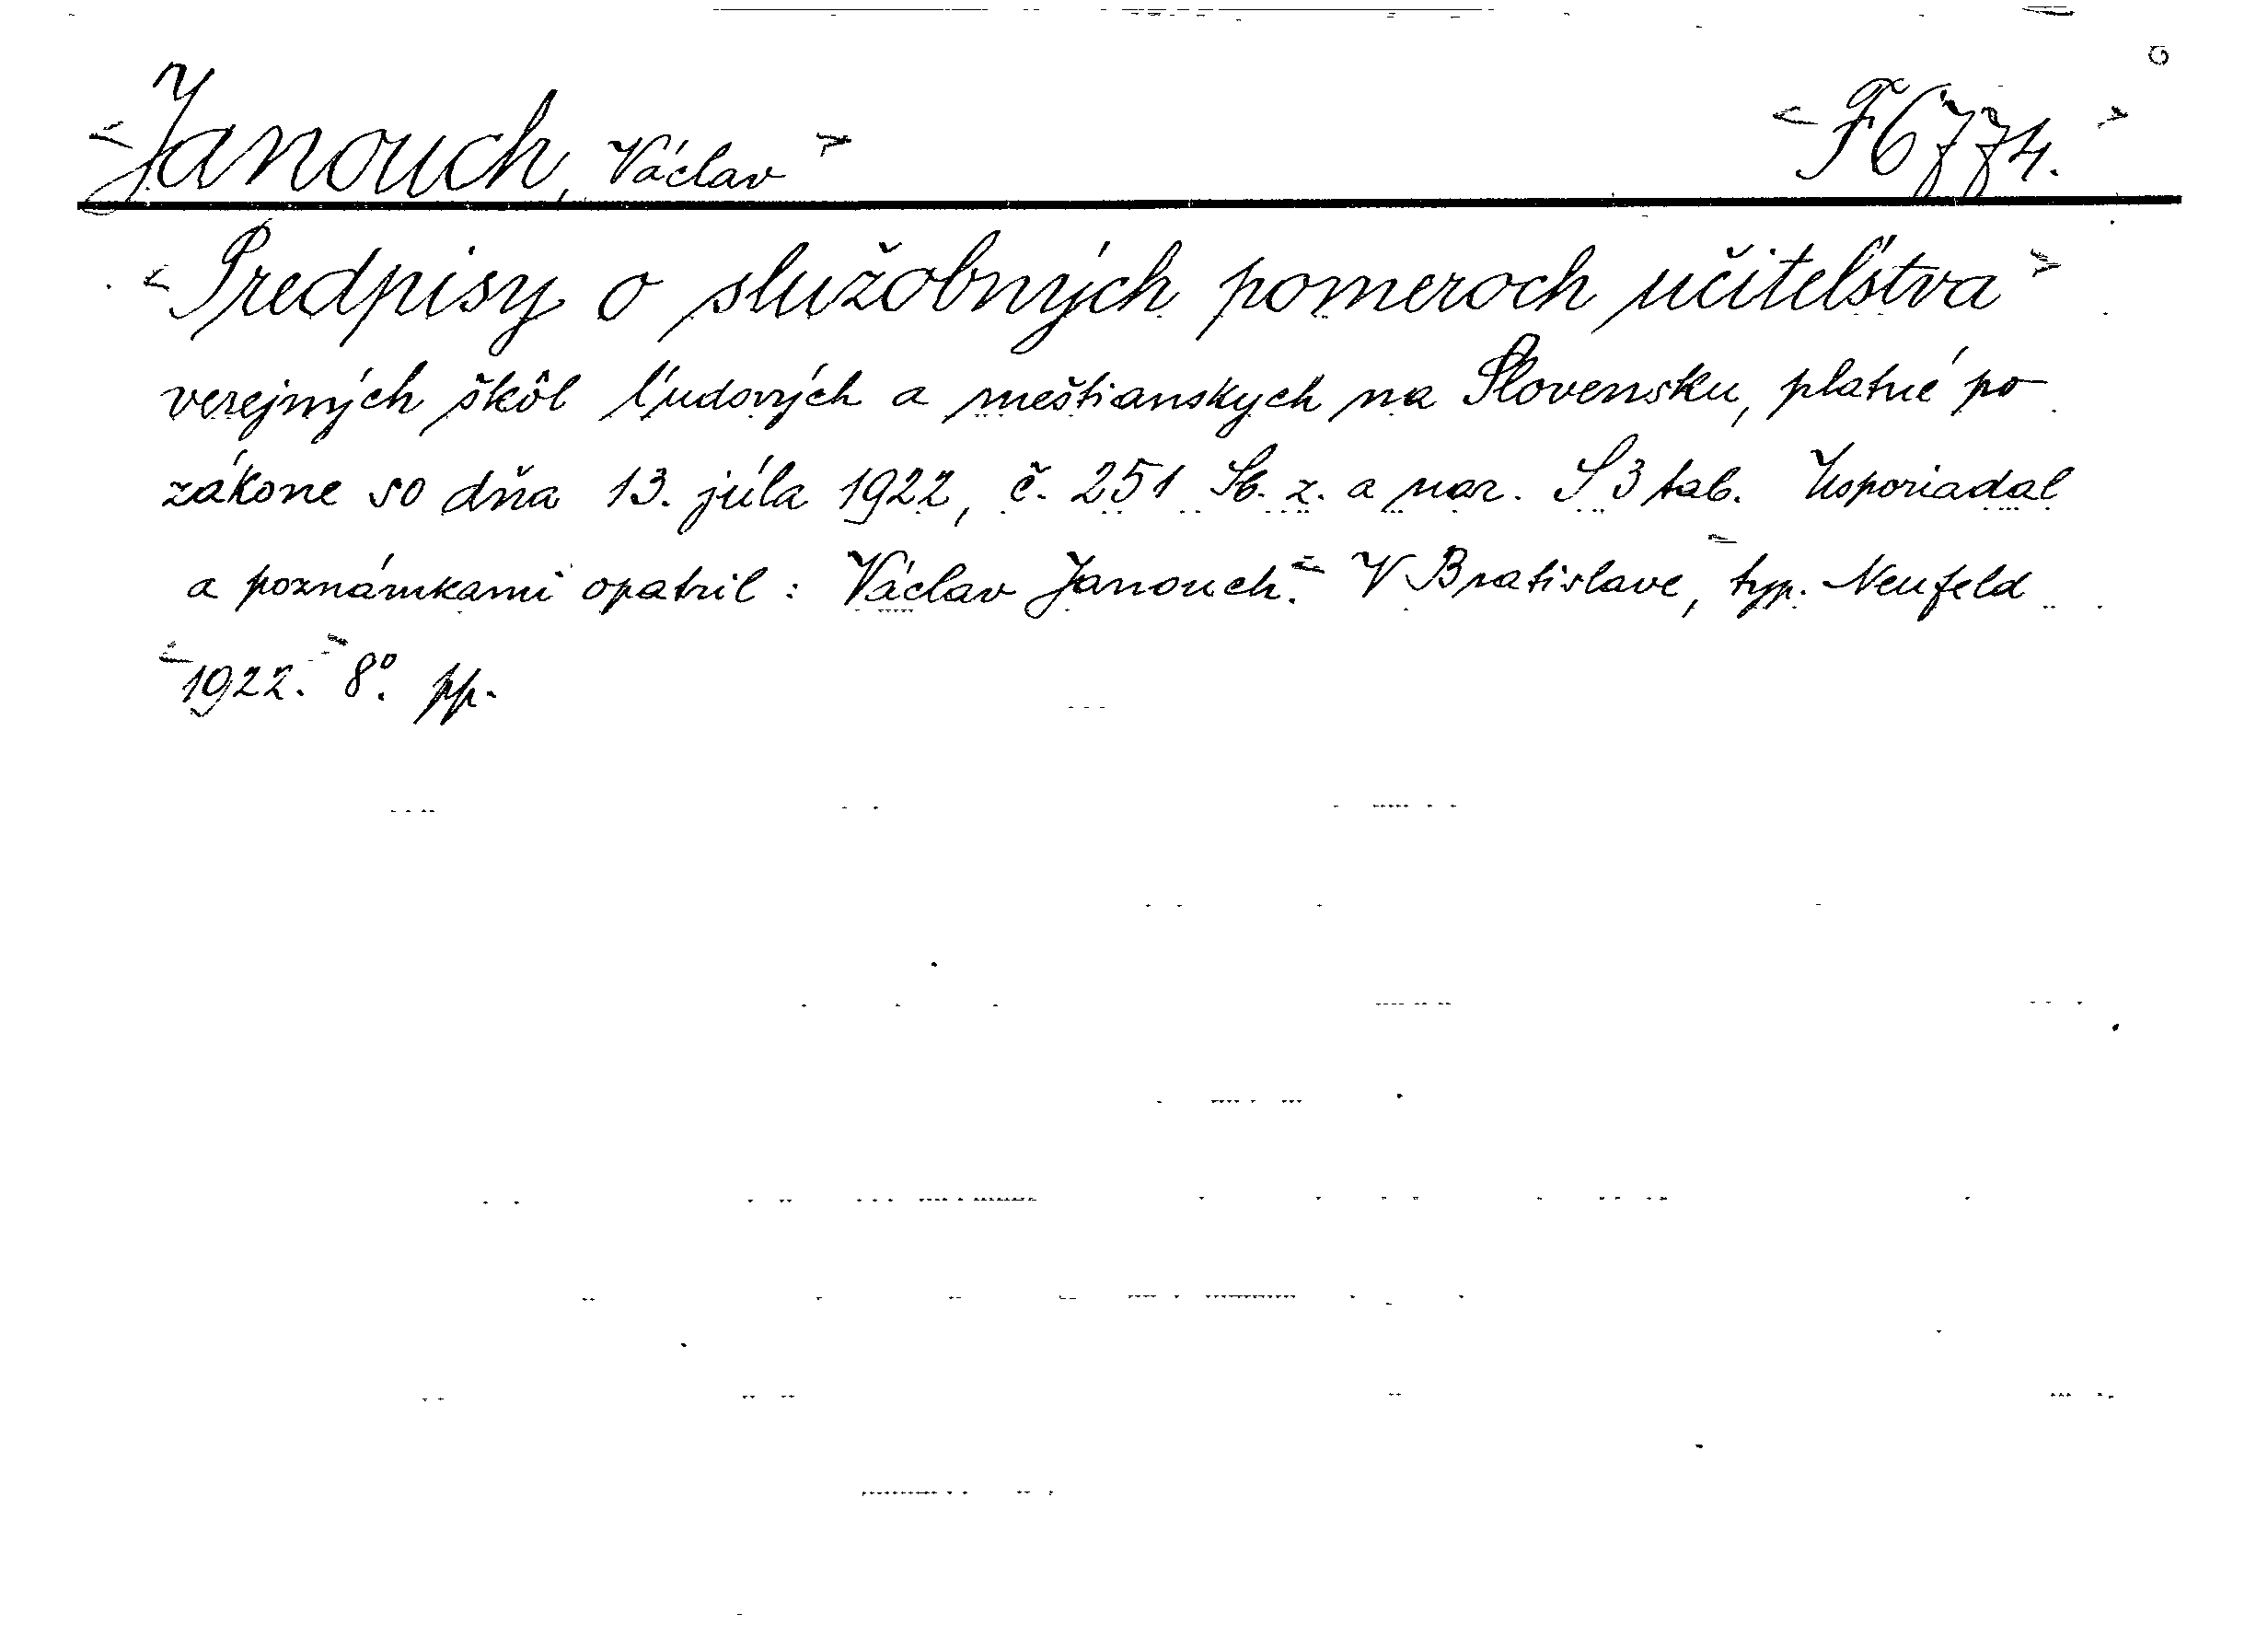 Janouch, Václav F6774.
Predpisy o služobných pomeroch učiteľstva
verejných škôl ľudových a meštianskych na Slovensku, platné po
zákone so dňa 13. júla 1922, č. 251 Sb. z. a nar. S 3 tab. Usporiadal
a poznámkami opatril: Václav Janouch. V Bratislave, typ. Neufeld
1922. 8°. pp.